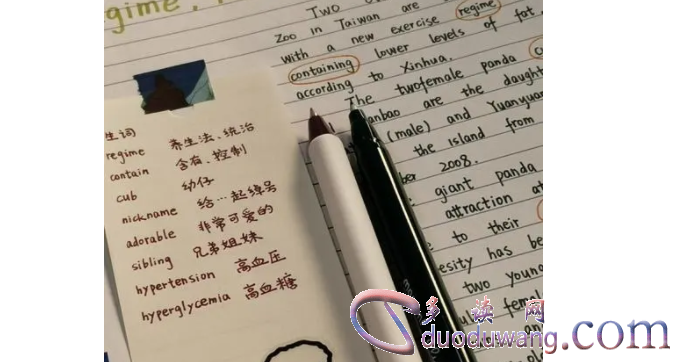 gime,
Two
Zoo in Taiwan are
with a new exercise regime
containing lower levels of fat
according to Xinhua.
The twofemale panda c
anbao are the daught
(male) and Yuanyuan
the island from
ber 2008.
giant panda
attraction at
to their
esity has be
two young
female
生词
regime 养生法、统治
contain 含有、控制
cub 幼仔
nickname 给…起绰号
adorable 非常可爱的
sibling 兄弟姐妹
hypertension 高血压
hyperglycemia 高血糖
多读网
duoduwang.com